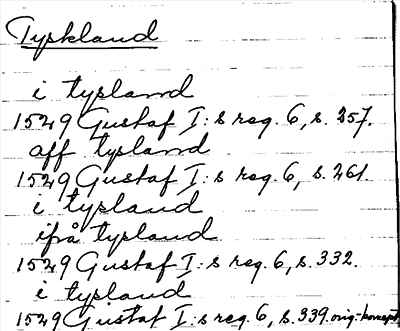 Tyskland
i tysland
1529 Gustaf I:s reg. 6, s. 257.
aff tysland
1529 Gustaf I:s reg. 6, s. 261.
i tysland
ifrå tysland
1529 Gustaf I:s reg. 6, s. 332.
i tysland
1529 Gustaf I:s reg. 6, s. 339. orig.-koncept